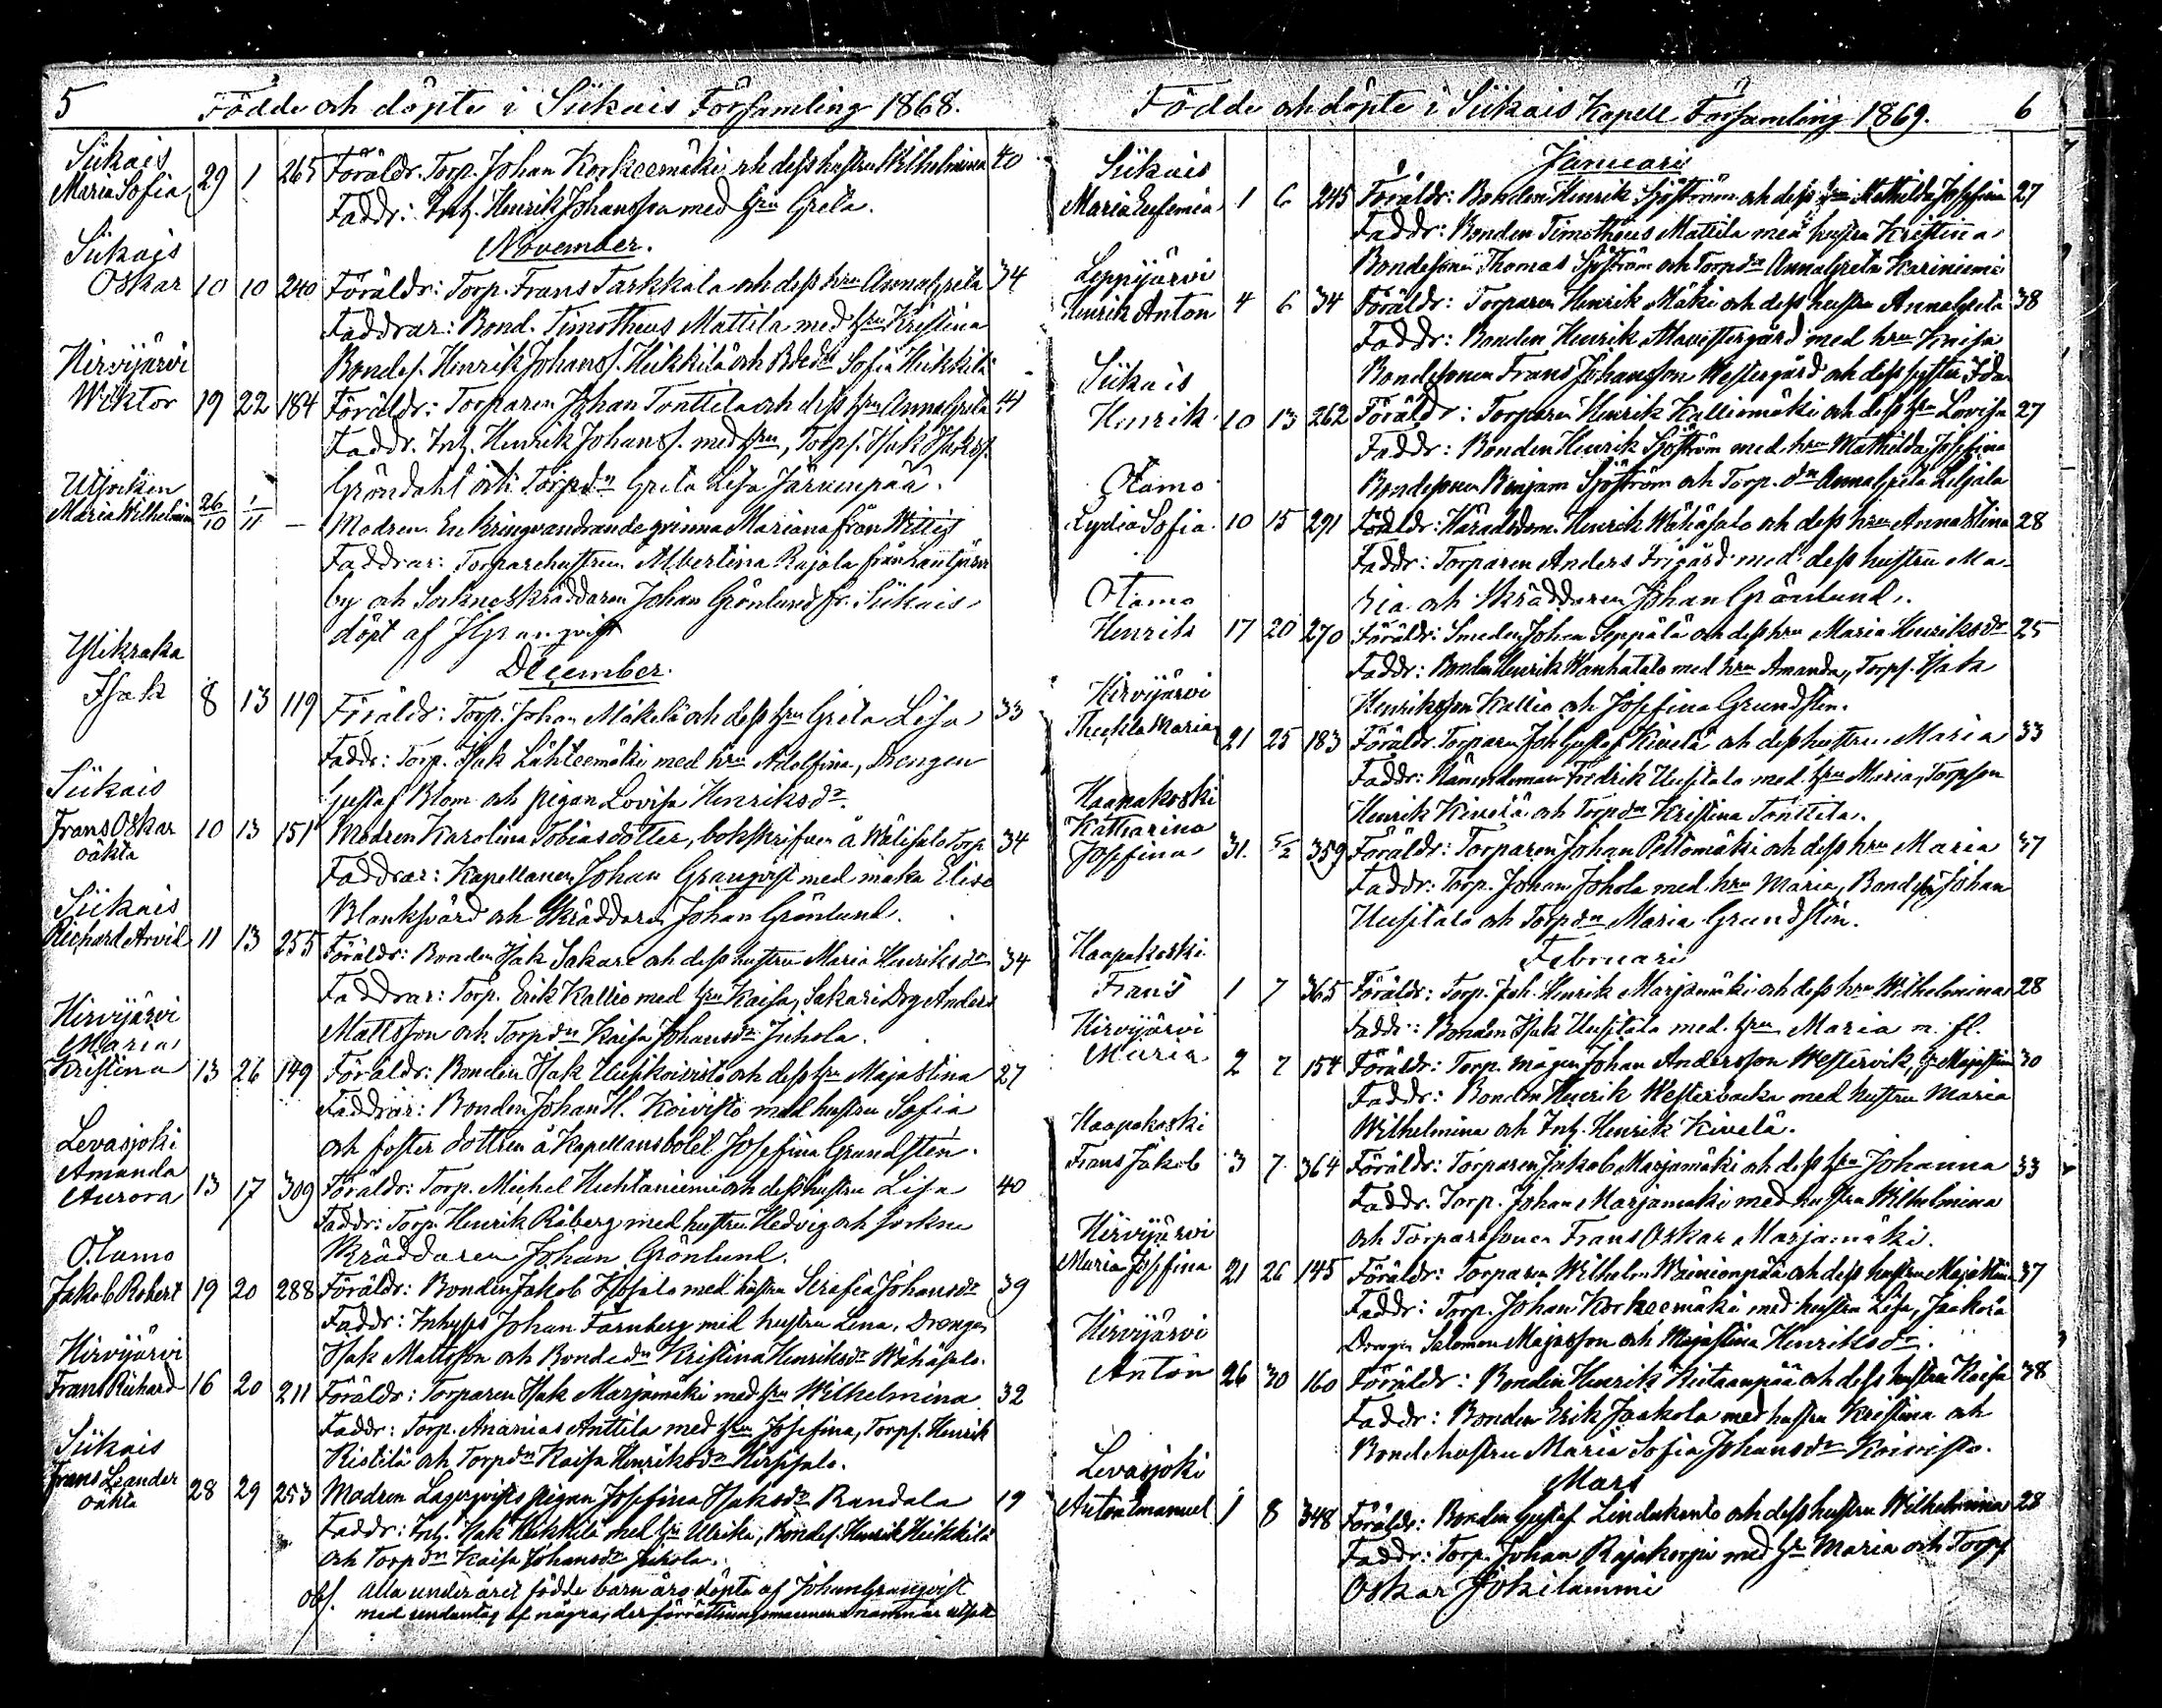 5 Födde och döpte i Siikais Församling 1868.
Siikais
Maria Sofia 29 1 265 Föräldr. Torp. Johan Korkeemäki och dess hustru Wilhelmina 40
Faddr: Inh. Henrik Johansson med hru Greta.
November.
Siikais
Oskar 10 10 240 Föräldr: Torp. Frans Tarkkala och dess hru Anna Greta 34
Faddrar: Bond. Timotheus Mattila med hru Kristina
Bondes. Henrik Johanss. Heikkilä och Bdedr Sofia Heikkilä
Hirvijärvi
Wiktor 19 22 184 Föräldr: Torparen Johan Tonttila och dess hru Anna Greta 41
Faddr. Inh. Henrik Johanss. med hru, Torps. Isak Isakss.
Gröndahl och Torpdr Greta Lisa Järvenpää.
Utsocken
Maria Wilhelmina 26/10 1/11 — Modren En kringvandrande qvinna Mariana från Wittisf
Faddrar: Torparehustrun Albertina Rajala från
by och Sockneskräddaren Johan Grönlund fr. Siikais,
döpt af J Granqvist
December.
Ylikraka
Isak 8 13 119 Föräldr: Torp. Johan Mäkelä och dess hru Greta Lisa 33
Faddr: Torp. Isak Lähteemäki med hru Adolfina, Drengen
Gustaf Blom och pigan Lovisa Henriksdr.
Siikais
Frans Oskar 10 13 151 Modren Karolina Tobiasdotter, bokskrifven å Wälisalo Torp 34
oäkta
Faddrar: Kapellanen Johan Granqvist med maka Elise
Blanksvärd och Skräddaren Johan Grönlund.
Siikais
Richard Arvid 11 13 255 Föräldr: Bonden Isak Sakari och dess hustru Maria Henriksdr 34
Faddrar: Torp. Erik Kallio med hru Kaisa, Sakari Drg Anders
Mattsson och Torpdr Kaisa Johansdr Juhola.
Hirvijärvi
Maria
Kristina 13 26 149 Föräldr: Bonden Isak Uusikoivisto och dess hru Maja Stina 27
Faddrar: Bonden Johan H. Koivisto med hustru Sofia
och foster dottren å Kapellansbolet Josefina Grundstén.
Levasjoki
Amanda
Aurora 13 17 309 Föräldr: Torp. Michel Huhtaniemi och dess hustru Lisa 40
Faddr: Torp. Henrik Råberg med hustru Hedvig och Sockne
Skräddaren Johan Grönlund.
Otamo
Jakob Robert 19 20 288 Föräldr: Bonden Jakob Isosalo med hustru Serafia Johansdr 39
Faddr: Inhyses Johan Farnberg med hustru Lena, Drengen
Isak Mattsson och Bondedr Kristina Henriksdr Wähäsalo.
Hirvijärvi
Frans Richard 16 20 211 Föräldr: Torparen Isak Marjamäki med hru Wilhelmina 32
Faddr: Torp. Ananias Anttila med hru Josefina, Torps. Henrik
Ristilä och Torpdr Kaisa Henriksdr Hirsisalo.
Siikais
Frans Leander 28 29 253 Modren Lagerqvists pigan Josefina Isaksdr Randala 19
oäkta
Faddr: Inh. Isak Heikkilä med hru Ulrika, Bondes. Henrik Heikkilä
och Torpdr Kaisa Johansdr Juhola.
obs. alla under året födde barn äro döpta af Johan Granqvist
med undantag af några, der förrättningsmannens namn är utsatt
Födde och döpte i Siikais Kapell Församling 1869. 6
Januari
Siikais
Maria Eufemia 1 6 245 Föräldr: Bonden Henrik Sjöström och dess hru Mathilda Josefina 27
Faddr: Bonden Timotheus Mattila med hustru Kristina
Bondesonen Thomas Sjöström och Torpdr Anna Greta Kariniemi
Leppijärvi
Henrik Anton 4 6 34 Föräldr: Torparen Henrik Mäki och dess hustru Anna Greta 38
Faddr: Bonden Henrik med hru Kaisa
Bondesonen Frans Johansson Westergård och dess syster Ida
Siikais
Henrik 10 13 262 Föräldr: Torparen Henrik Kalliomäki och dess hru Lovisa 27
Faddr: Bonden Henrik Sjöström med hru Mathilda Josefina
Bondesonen Benjam Sjöström och Torp. dr Anna Greta Liljala
Otamo
Lydia Sofia 10 15 291 Föäldr: Häradsdom. Henrik Wähäsalo och dess hru Anna Stina 28
Faddr: Torparen Anders Frigård med dess hustru Ma-
ria och Skräddaren Johan Grönlund.
Otamo
Henrik 17 20 270 Föräldr: Smeden Johan Seppälä och dess hru Maria Henriksdr 25
Faddr: Bonden Henrik Wanhatalo med hru Amanda, Torps. Isak
Henriksson Kallio och Josefina Grundstén.
Hirvijärvi
Theckla Maria 21 25 183 Föräldr. Torparen Joh Gustaf Kivelä och dess hustru Maria 33
Faddr: Nämndeman Fredrik Uusitalo med hru Maria, Torpson
Henrik Kivelä och Torpdr Kristina Tonttila.
Haapakoski
Katharina
Josefina 31 5/2 359 Föräldr: Torparen Johan Peltomäki och dess hru Maria 37
Faddr: Torp. Johan Johola med hru Maria, Bondeson Johan
Uusitalo och Torpdr Maria Grundstén.
Februari
Haapakoski
Frans 1 7 365 Föräldr: Torp. Joh. Henrik Marjamäki och dess hru Wilhelmina 28
Faddr: Bonden Isak Uusitalo med hru Maria m. fl.
Hirvijärvi
Maria 2 7 154 Föräldr: Torp. mågen Johan Andersson Westervik, hru Maja Stina 30
Faddr: Bonden Henrik Westerbacka med hustru Maria
Wilhelmina och Inh. Henrik Kivelä.
Haapakoski
Frans Jakob 3 7 364 Föräldr: Torparen Jakob Marjamäki och dess hru Johanna 33
Faddr. Torp. Johan Marjamäki med hustru Wilhelmina
och Torparesonen Frans Oskar Marjamäki.
Hirvijärvi
Maria Josefina 21 26 145 Föräldr: Torparen Wilhelm Wäinionpää och dess hustru Maja Stina 37
Faddr: Torp. Johan Korkeemäki med hustru Lisa, Jaakola
Drengen Salomon Majasson och Maja Stina Henriksdr.
Hirvijärvi
Anton 26 30 160 Föräldr: Bonden Henrik Kiitaanpää och dess hustru Kaisa 38
Faddr: Bonden Erik Jaakola med hustru Kristina och
Bondehustru Maria Sofia Johansdr Koivisto.
Mars
Levasjoki
Anton Emanuel 1 8 348 Föräldr: Bonden Gustaf Lindukanto och dess hustru Wilhelmina 28
Faddr: Torp. Johan Rajakorpi med hr Maria och Torps
Oskar Jokilammi